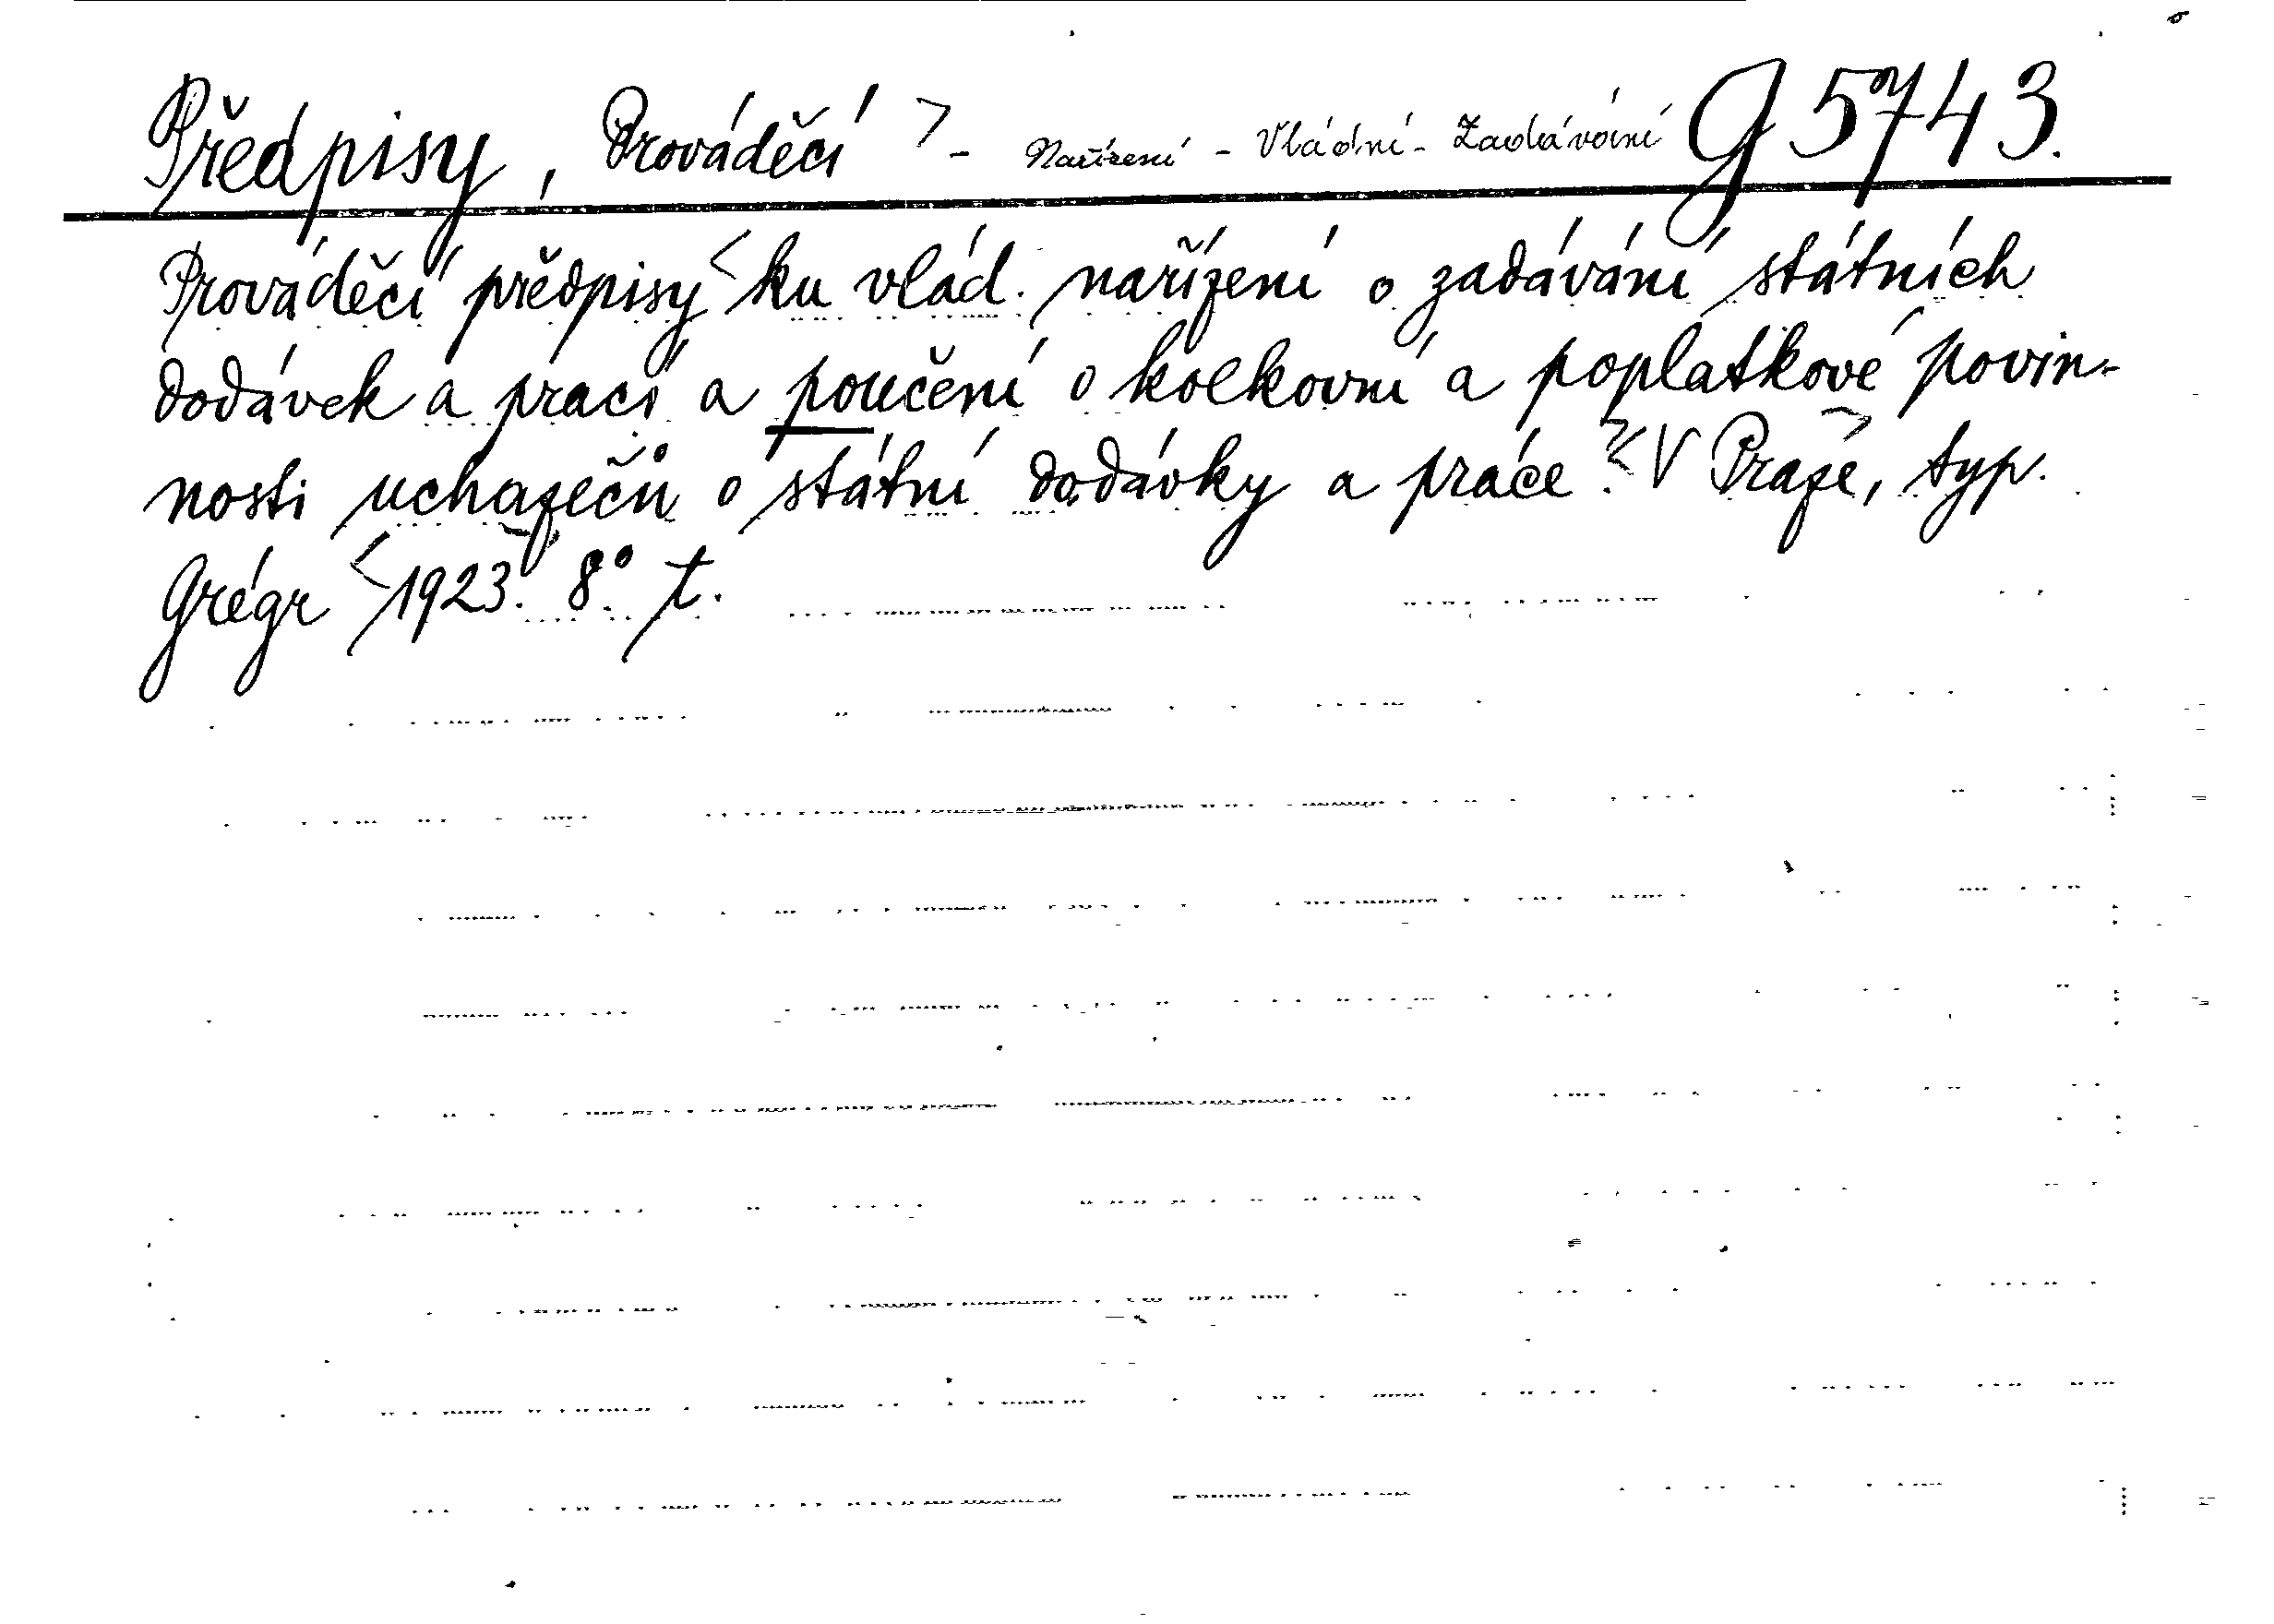 Předpisy, Prováděcí - Nařízení - Vládní - Zadávání G 5743.
Prováděcí předpisy ku vlád. nařízení o zadávání státních
dodávek a prací a poučení o kolkovní a poplatkové povin-
nosti uchazečů o státní dodávky a práce. V Praze, typ.
Grégr 1923. 8° t.